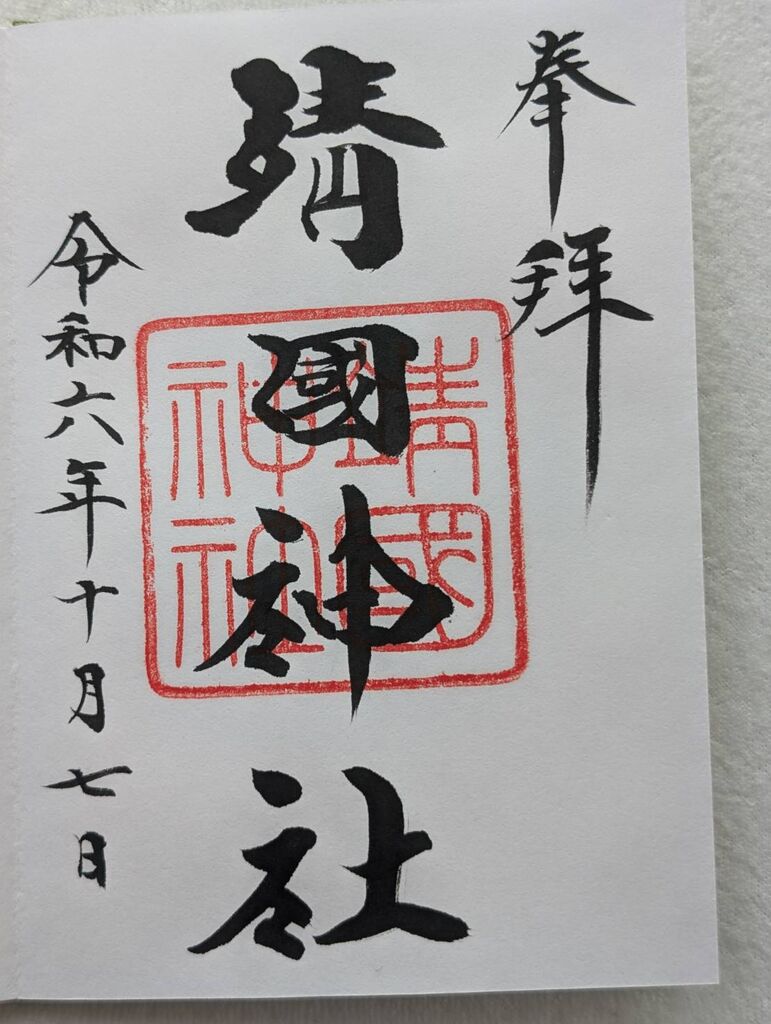 奉拝
靖國神社
靖國神社
令和六年十月七日